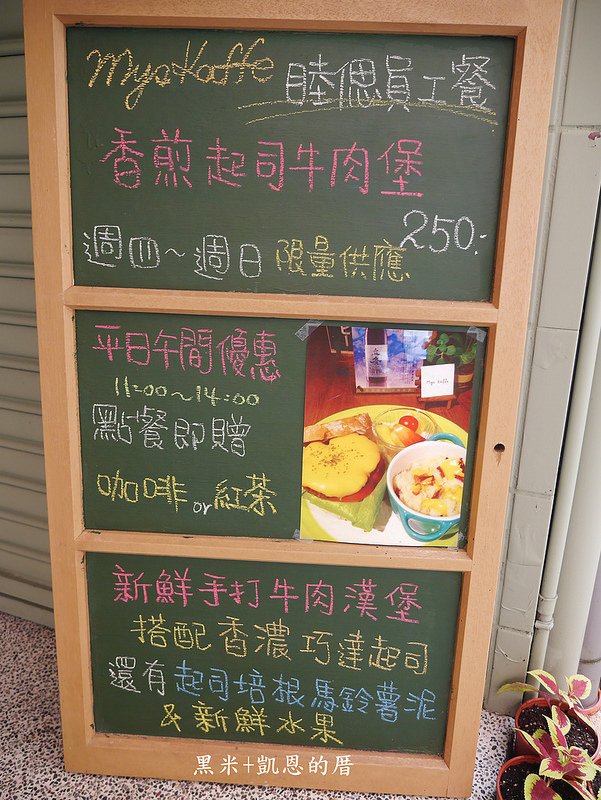 MyoKaffe 睦偲員工餐
香煎起司牛肉堡
250.-
週四～週日 限量供應
平日午間優惠
11:00～14:00
點餐即贈
咖啡or紅茶
Myo Kaffe
新鮮手打牛肉漢堡
搭配香濃巧達起司
還有起司培根馬鈴薯泥
&新鮮水果
黑米+凱恩的厝